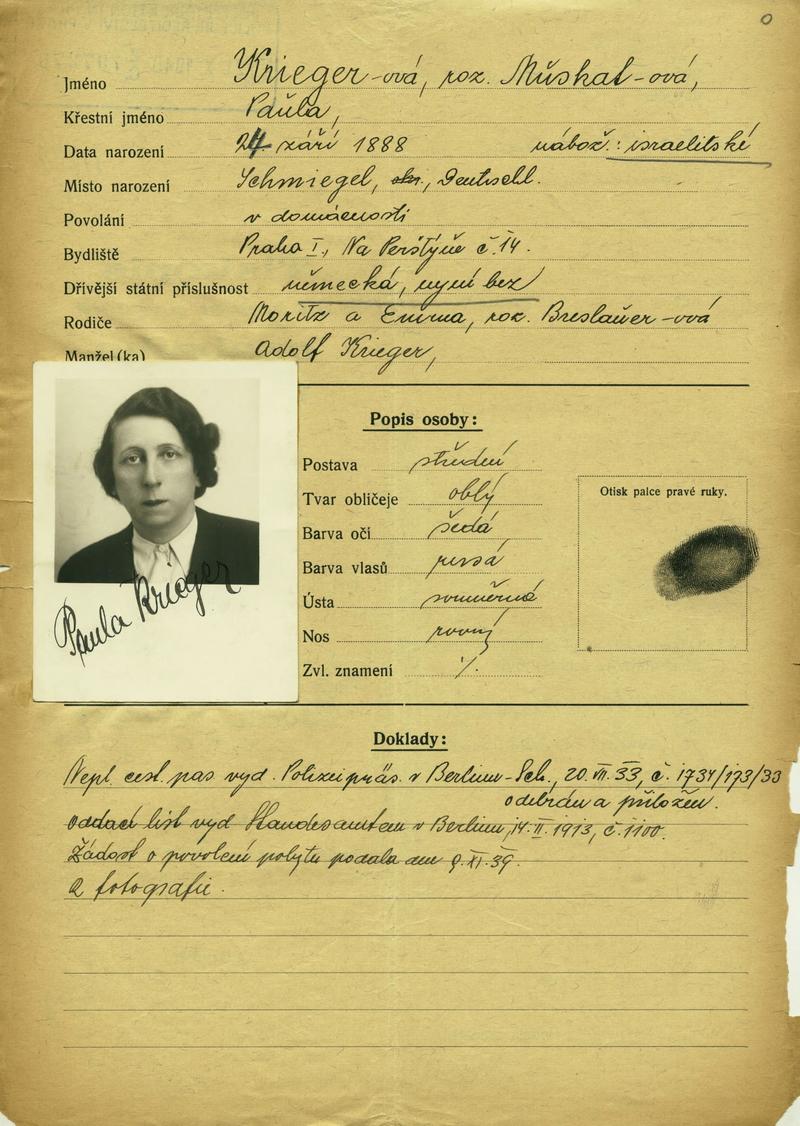 0
Jméno Krieger-ová, roz. Műskat-ová,
Křestní jméno Paŭla,
Data narození 24. září 1888 nábož.: israelitské
Místo narození Schmiegel, okr., Deutschl.
Povolání v domácnosti
Bydliště Praha I., Na Perštýně č. 14.
Dřívější státní příslušnost německá, nyní bez
Rodiče Moritz a Emma, roz. Breslaŭer-ová
Manžel(ka) Adolf Krieger,
Popis osoby:
Postava střední
Tvar obličeje oblý
Barva očí šedá
Barva vlasů rusá
Ústa souměrná
Nos rovný
Zvl. znamení ./.
Otisk palce pravé ruky.
Paula Krieger
Doklady:
Nepl. cest. pas vyd. Polizeipräs. v Berlinu-Sch., 20.VII.33, č. 1734/173/33
odebrán a přiložen.
oddací list vyd Standesamtem v Berlinu, 14.II.1913, č. 1100.
Žádost o povolení pobytu podala dne 9.XI.39.
2 fotografie.